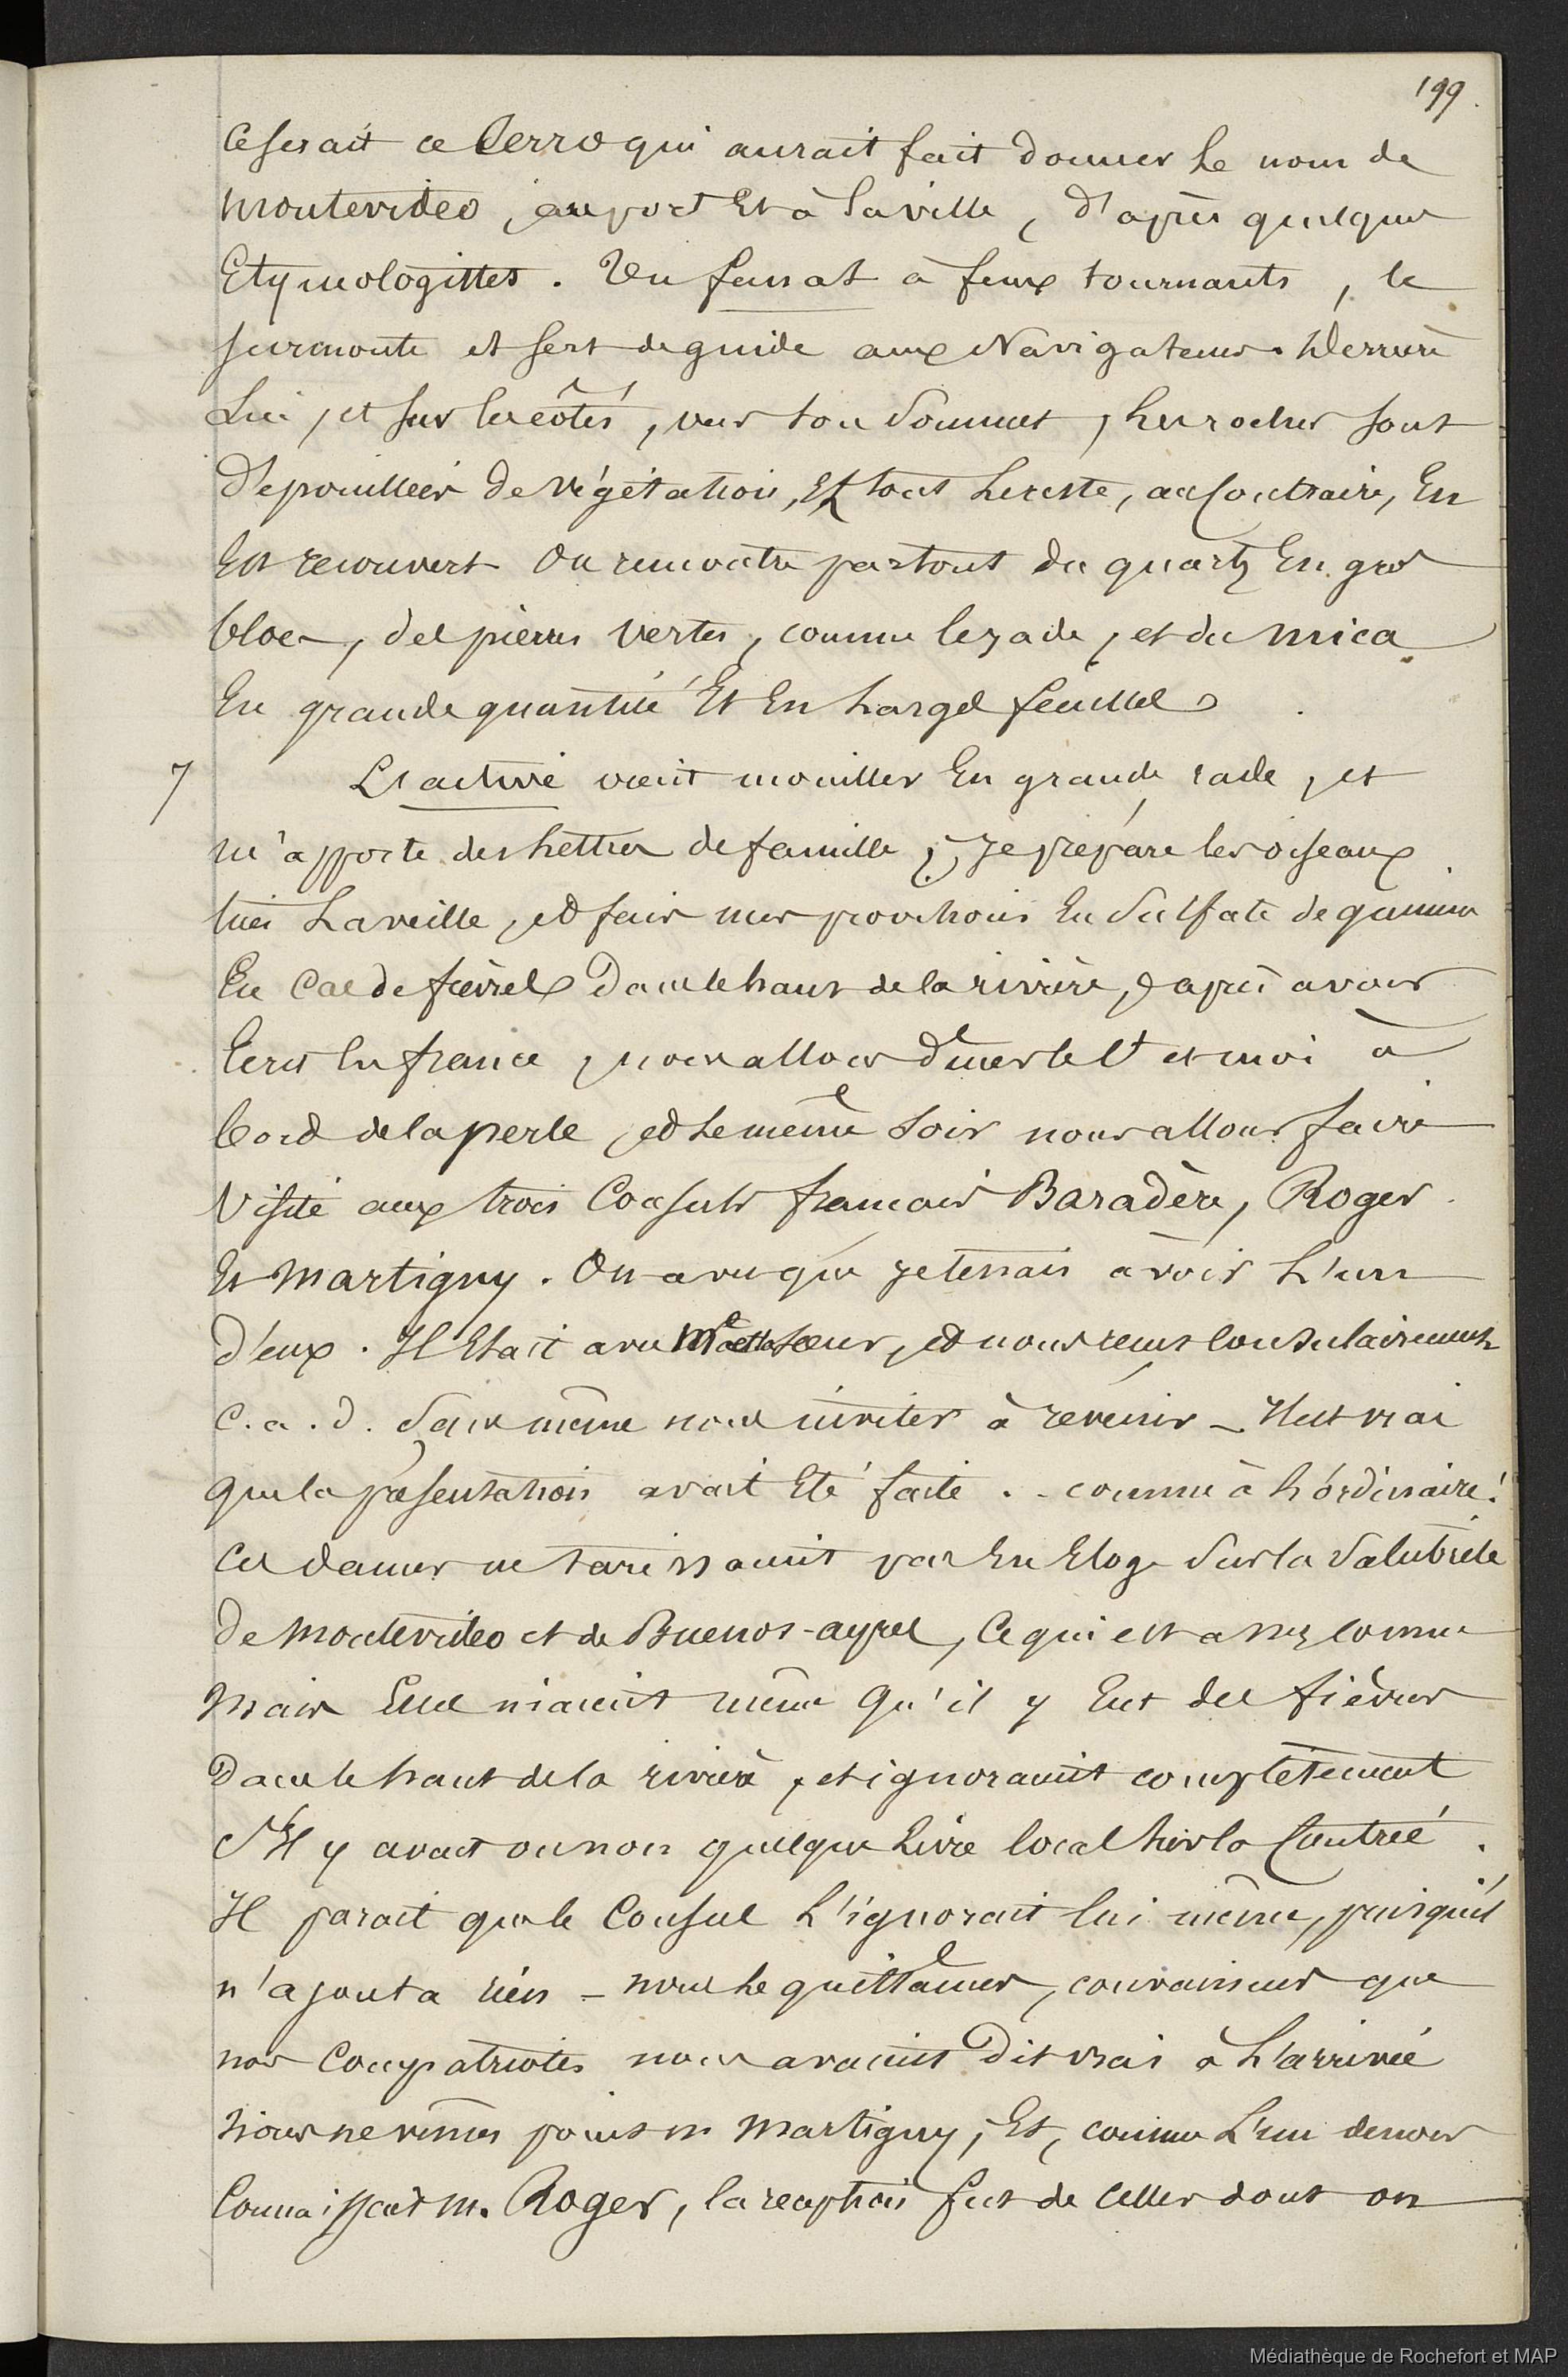 199.
Ce serait ce Cerro qui aurait fait donner le nom de
Montevideo, au port Et à la ville, d'après quelques
Etymologistes. Un fanal à feux tournants, le
surmonte et sert de guide aux Navigateurs. Derrière
Lui, et sur les côtés, vers son Sommet, les rochers sont
Dépouillés de Végétation, Et tout le reste, au Contraire, En
Est recouvert. On rencontre partout du quartz En gros
blocs, des pierres vertes, comme le jade, et du mica
En grande quantité Et En larges feuilles.
7 L'active vient mouiller En grande rade, et
m'apporte des lettres de famille; je prépare les oiseaux
tués La veille, et fais mes provisions En Sulfate de quinine
En Cas de fièvres Dans le haut de la rivière, & après avoir
Ecrit En france, nous allons Diner le Ct et moi à
bord de la perle, et le même soir nous allons faire
Visite aux trois Consuls français Baradère, Roger
Et Martigny. On a vu que je tenais à voir L'un
d'eux. Il Etait avec Me et la soeur, et nous reçut Consulairement
C. a. d. Sans même nous inviter à revenir _ Il est vrai
que la présentation avait Eté faite .. comme à l'ordinaire!
Ces dames ne tarissaient pas En Eloge Sur la Salubrité
De Montevideo et de Buenos-ayres, Ce qui est assez connu
Mais Elles niaient même Qu'il y Eut des fièvres
Dans le haut de la rivière, et ignoraient complètement
S'Il y avait ou non quelque Livre local sur la Contrée.
Il parait que le Consul L'ignorait lui même, puisqu'il
n'ajouta rien _ nous le quittâmes, convaincus que
nos Compatriotes nous avaient Dit vrai à L'arrivée
Nous ne vimes point m Martigny, Et, comme L'un de nous
Connaissait M. Roger, la reception fut de Celles dont on
Médiathèque de Rochefort et MAP